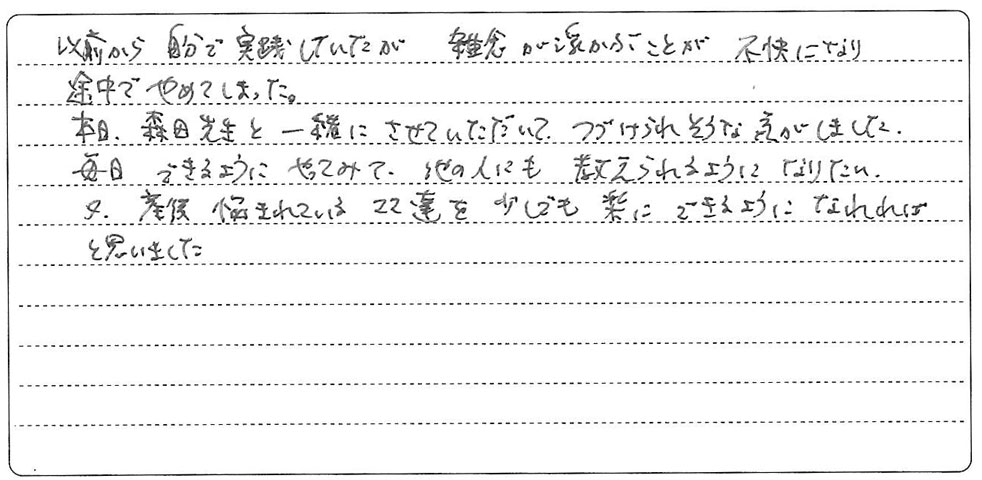 以前から 自分で実践していたが 雑念が浮かぶことが 不快になり
途中でやめてしまった。
本日、森田先生と一緒にさせていただいて、つづけられそうな気がしました。
毎日 できるようにやってみて、他の人にも 教えられるようになりたい。
又、産後 悩まれている ママ達を 少しでも 楽に できるように なれれば
と思いました